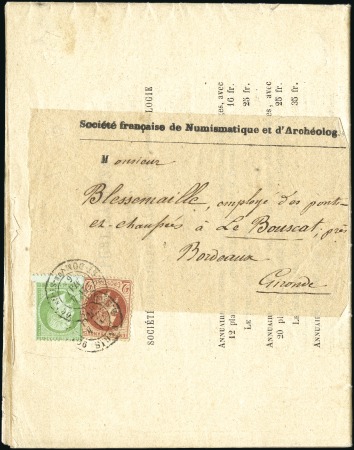 Société française de Numismatique et d'Archéolog
Monsieur
Blessemaille, employé des ponts-
et-chaussées à Le Bouscat, près
Bordeaux
Gironde
SOCIÉTÉ
LOGIE
ANNUAI
12 pla
LE
es, avec
16 fr.
25 fr.
ANNUAIR
20 pl
LE
es, avec
25 fr.
35 fr.
ANNUAIR